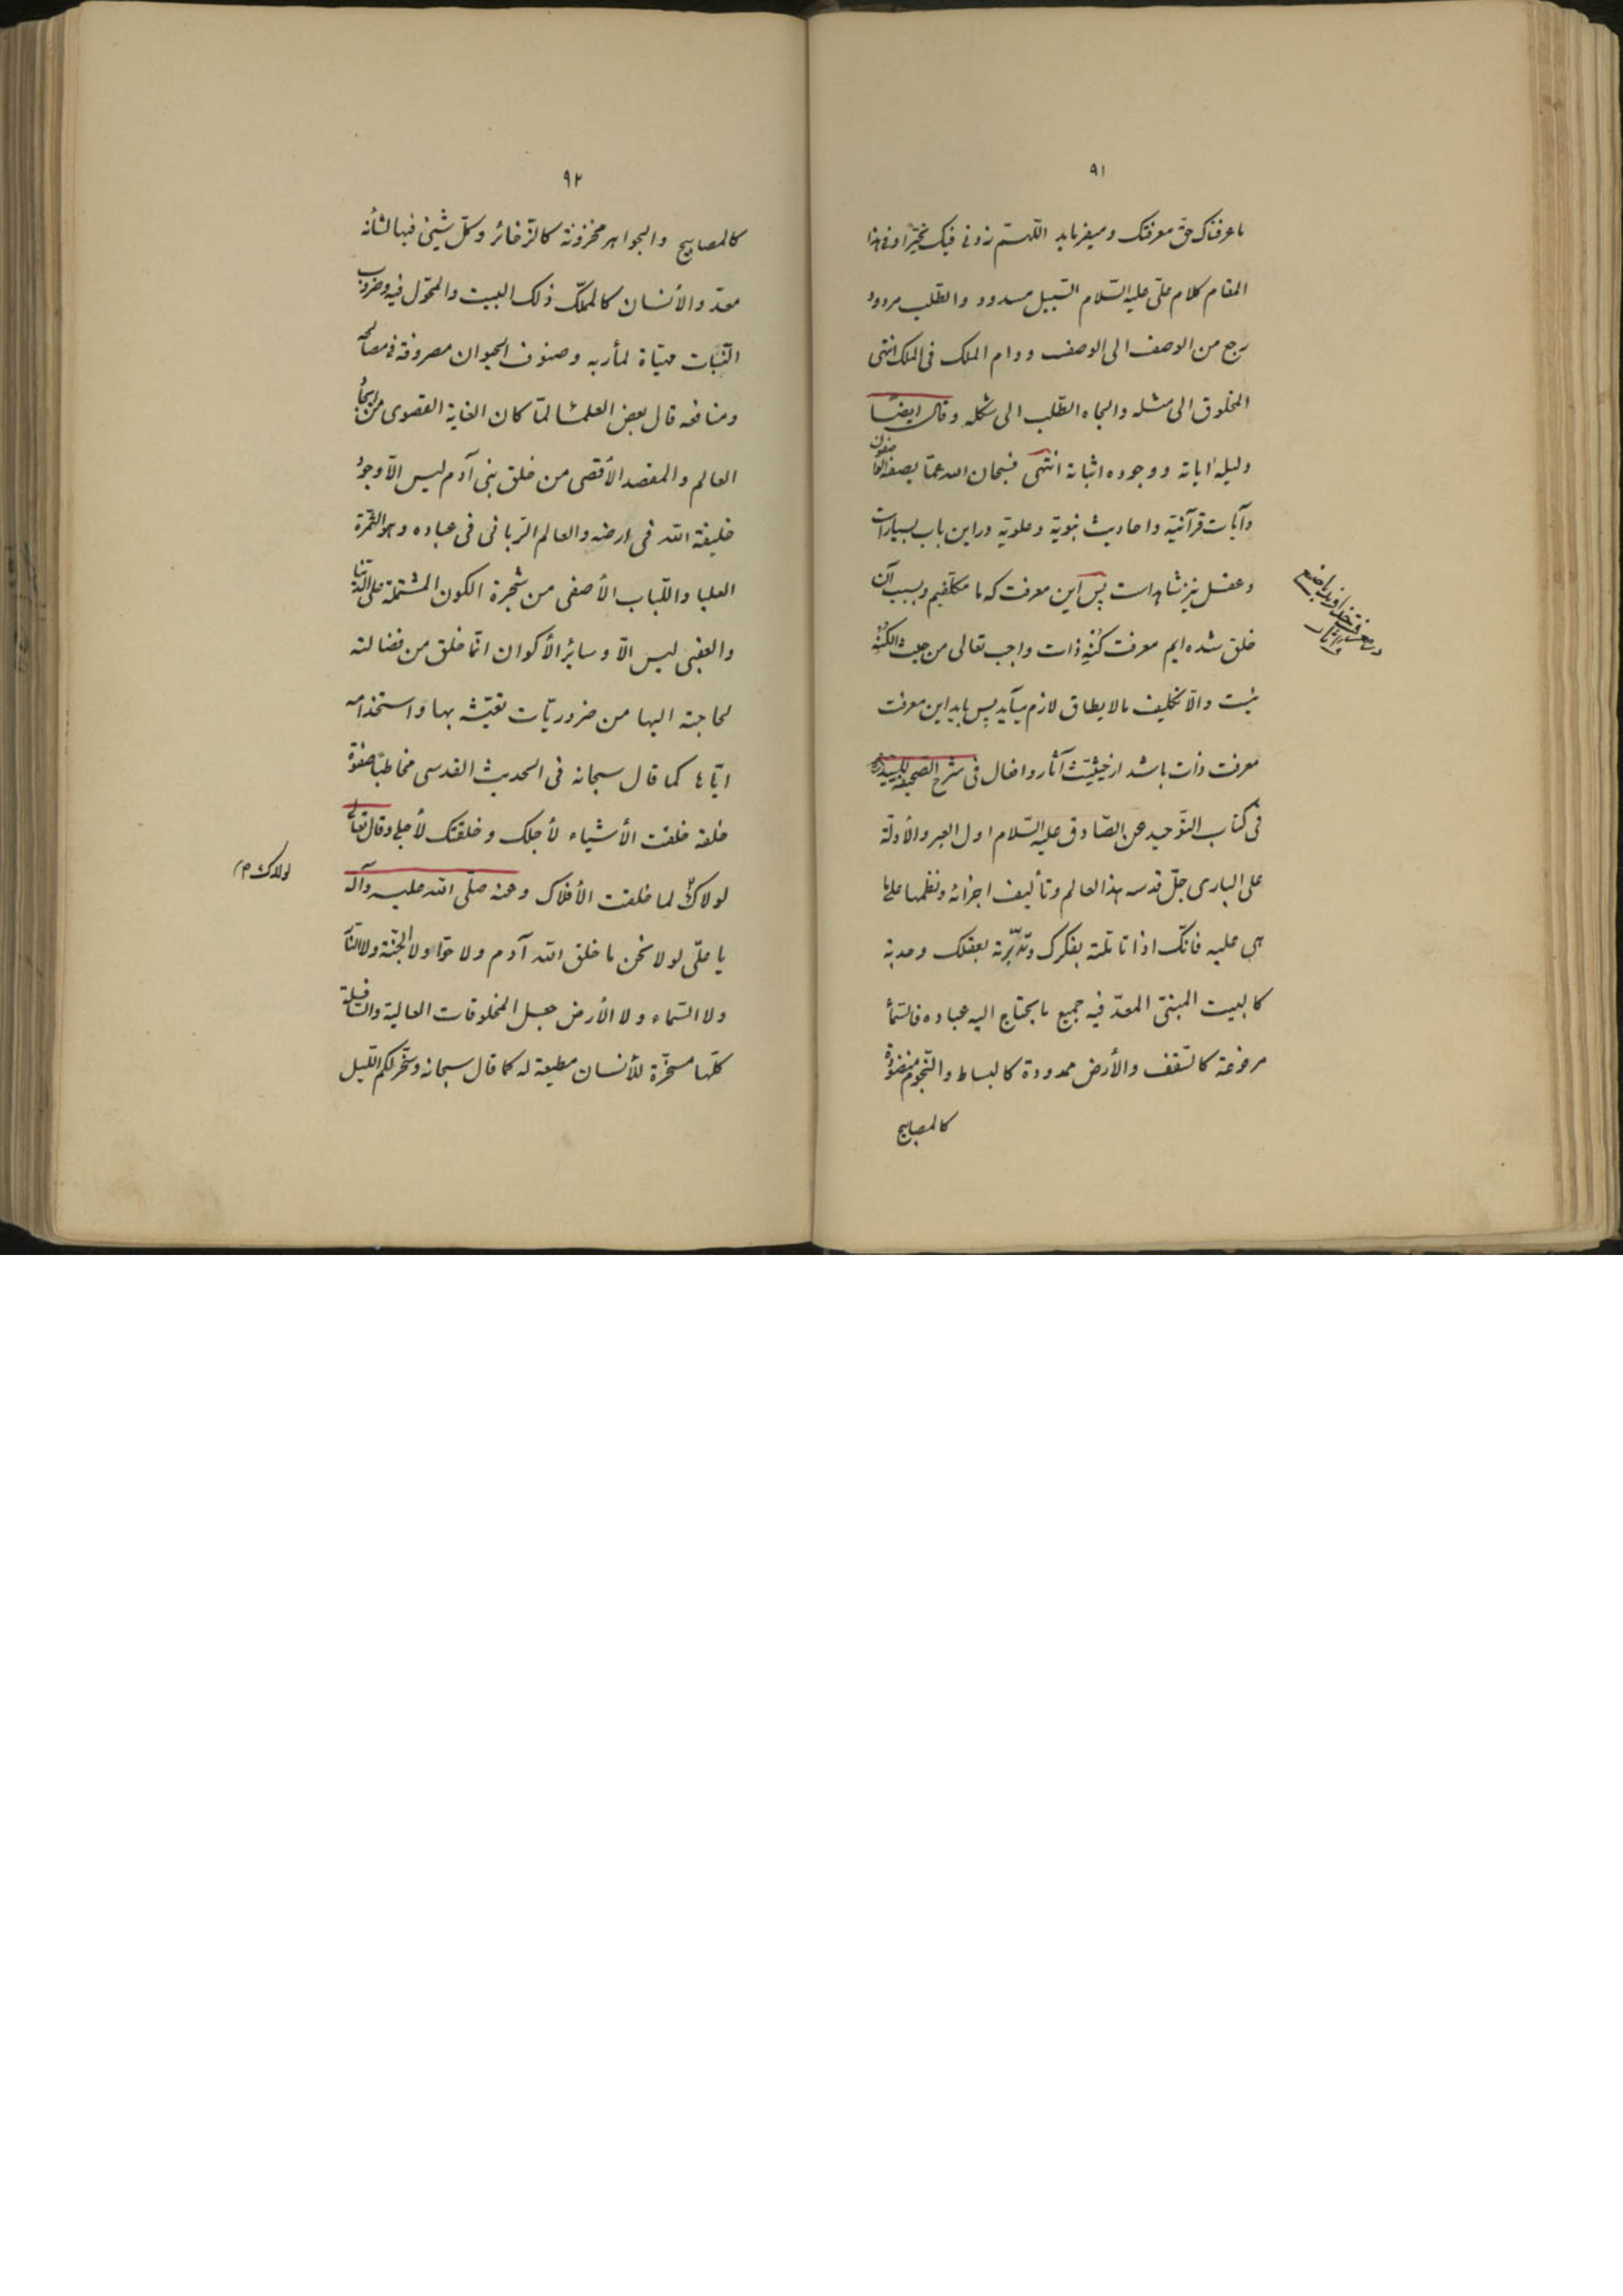 ٩١
ما عرفناک حقّ معرفتک و میفرماید اللّهمّ زدنی فیک تحیّرًا و فی هذا
المقام کلام علیّ علیه السّلام السّبیل مسدود و الطّلب مردود
رجع من الوصف الی الوصف و دام الملک فی الملک انتهی
المخلوق الی مثله و الجاه الطّلب الی شکله و قال ایضًا
دلیله ایاته و وجوده اثباته انتهی فسبحان الله عمّا یصفه الواصفون
و آیات قرآنیّة و احادیث نبویّة و علویّة در این باب بسیار است
و عقل نیز شاهد است پس این معرفت که ما مکلّفیم و بسبب آن
خلق شده ایم معرفت کُنهِ ذات واجب تعالی من حیث الکُنهِ
نیست و الّا تکلیف مالایطاق لازم میآید پس باید این معرفت
معرفت ذات باشد از حیثیّت آثار و افعال فی شرح الصحیفة للسید
فی کتاب التّوحید عن الصّادق علیه السّلام اول العبر و الأدلّة
علی الباری جلّ قدسه هذا العالم و تألیف اجزائه و نظمها علی ما
هی علیه فانّک اذا تأمّلته بفکرک و تدبّرته بعقلک وجدته
کالبیت المبنیّ المعدّ فیه جمیع ما یحتاج الیه عباده فالسّمآء
مرفوعة کالسّقف و الأرض ممدودة کالبساط و النّجوم منضودة
کالمصابیح
در معرفت خداوند صانع
بآثار
٩٢
کالمصابیح و الجواهر مخزونة کالذّخائر و کلّ شیئ فیها لشأنه
معدّ و الأنسان کالمملّک ذلک البیت و المخوّل فیه و ضروب
النّبات مهیّاة لمأربه و صنوف الحیوان مصروفة فی مصالحه
و منافعه قال بعض العلمآء لمّا کان الغایة القصوی من ایجاد
العالم و المقصد الأقصی من خلق بنی آدم لیس الّا وجود
خلیفة الله فی ارضه و العالم الرّبانی فی عباده و هو الثّمرة
العلیا و اللّباب الأصفی من شجرة الکون المشتملة علی الدّنیا
و العقبی لیس الّا و سائر الأکوان انّما خلق من فضالته
لحاجته الیها من ضروریّات تعیّشه بها و استخدامه
ایّاها کما قال سبحانه فی الحدیث القدسی مخاطبًا صفوة
خلقه خلقت الأشیاء لأجلک و خلقتک لأجلی و قال تعالی
لولاک لما خلقت الأفلاک و عنه صلّی الله علیه و آله
یا علیّ لولا نحن ما خلق الله آدم و لا حوّاء و لا الجنّة و لا النّار
و لا السّماء و لا الأرض جعل المخلوقات العالیة و السّافلة
کلّها مسخّرة للأنسان مطیعة له کما قال سبحانه و سخّر لکم اللّیل
لولاک م